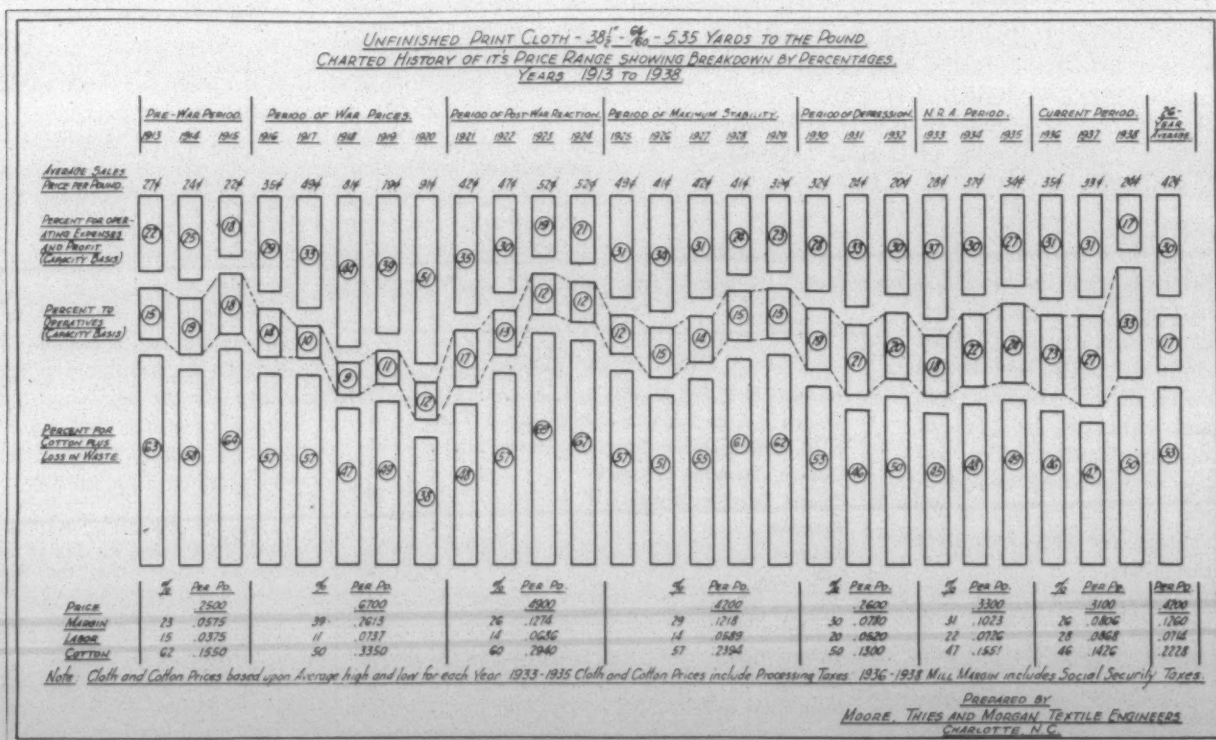 UNFINISHED PRINT CLOTH - 38½" - 64/60 - 5.35 YARDS TO THE POUND
CHARTED HISTORY OF IT'S PRICE RANGE SHOWING BREAKDOWN BY PERCENTAGES.
YEARS 1913 TO 1938
PRE-WAR PERIOD. PERIOD OF WAR PRICES. PERIOD OF POST WAR REACTION. PERIOD OF MAXIMUM STABILITY. PERIOD OF DEPRESSION. N.R.A. PERIOD. CURRENT PERIOD. 26-YEAR AVERAGE
1913 1914 1915 1916 1917 1918 1919 1920 1921 1922 1923 1924 1925 1926 1927 1928 1929 1930 1931 1932 1933 1934 1935 1936 1937 1938
AVERAGE SALES
PRICE PER POUND. 27¢ 24¢ 22¢ 35¢ 49¢ 81¢ 79¢ 91¢ 42¢ 47¢ 52¢ 52¢ 49¢ 41¢ 42¢ 41¢ 32¢ 24¢ 20¢ 28¢ 37¢ 34¢ 35¢ 33¢ 42¢
PERCENT FOR OPER-
ATING EXPENSES
AND PROFIT
(CAPACITY BASIS)
22 25 18 29 33 44 39 51 35 30 19 21 31 34 31 23 28 33 30 37 30 27 31 31 17 30
PERCENT TO
OPERATIVES
(CAPACITY BASIS)
15 19 18 14 10 9 11 12 17 13 12 12 12 15 14 15 15 19 21 20 18 22 23 27 33 17
PERCENT FOR
COTTON PLUS
LOSS IN WASTE
63 64 57 57 47 38 48 57 67 57 51 55 61 62 53 46 50 45 48 46 42 50 53
% PER PD. % PER PD. % PER PD. % PER PD. % PER PD. % PER PD. % PER PD. PER PD.
PRICE .2500 .6700 .4900 .4200 .2600 .3300 .3100 .4200
MARGIN 23 .0575 39 .2613 26 .1274 29 .1218 30 .0780 31 .1023 26 .0806 .1260
LABOR 15 .0375 11 .0737 14 .0686 14 .0589 20 .0520 22 .0726 28 .0868 .0714
COTTON 62 .1550 50 .3350 60 .2940 57 .2394 50 .1300 47 .1551 46 .1426 .2228
Note: Cloth and Cotton Prices based upon Average high and low for each Year 1933-1935 Cloth and Cotton Prices include Processing Taxes. 1936-1938 MILL MARGIN includes Social Security Taxes.
PREPARED BY
MOORE, THIES AND MORGAN TEXTILE ENGINEERS
CHARLOTTE, N.C.